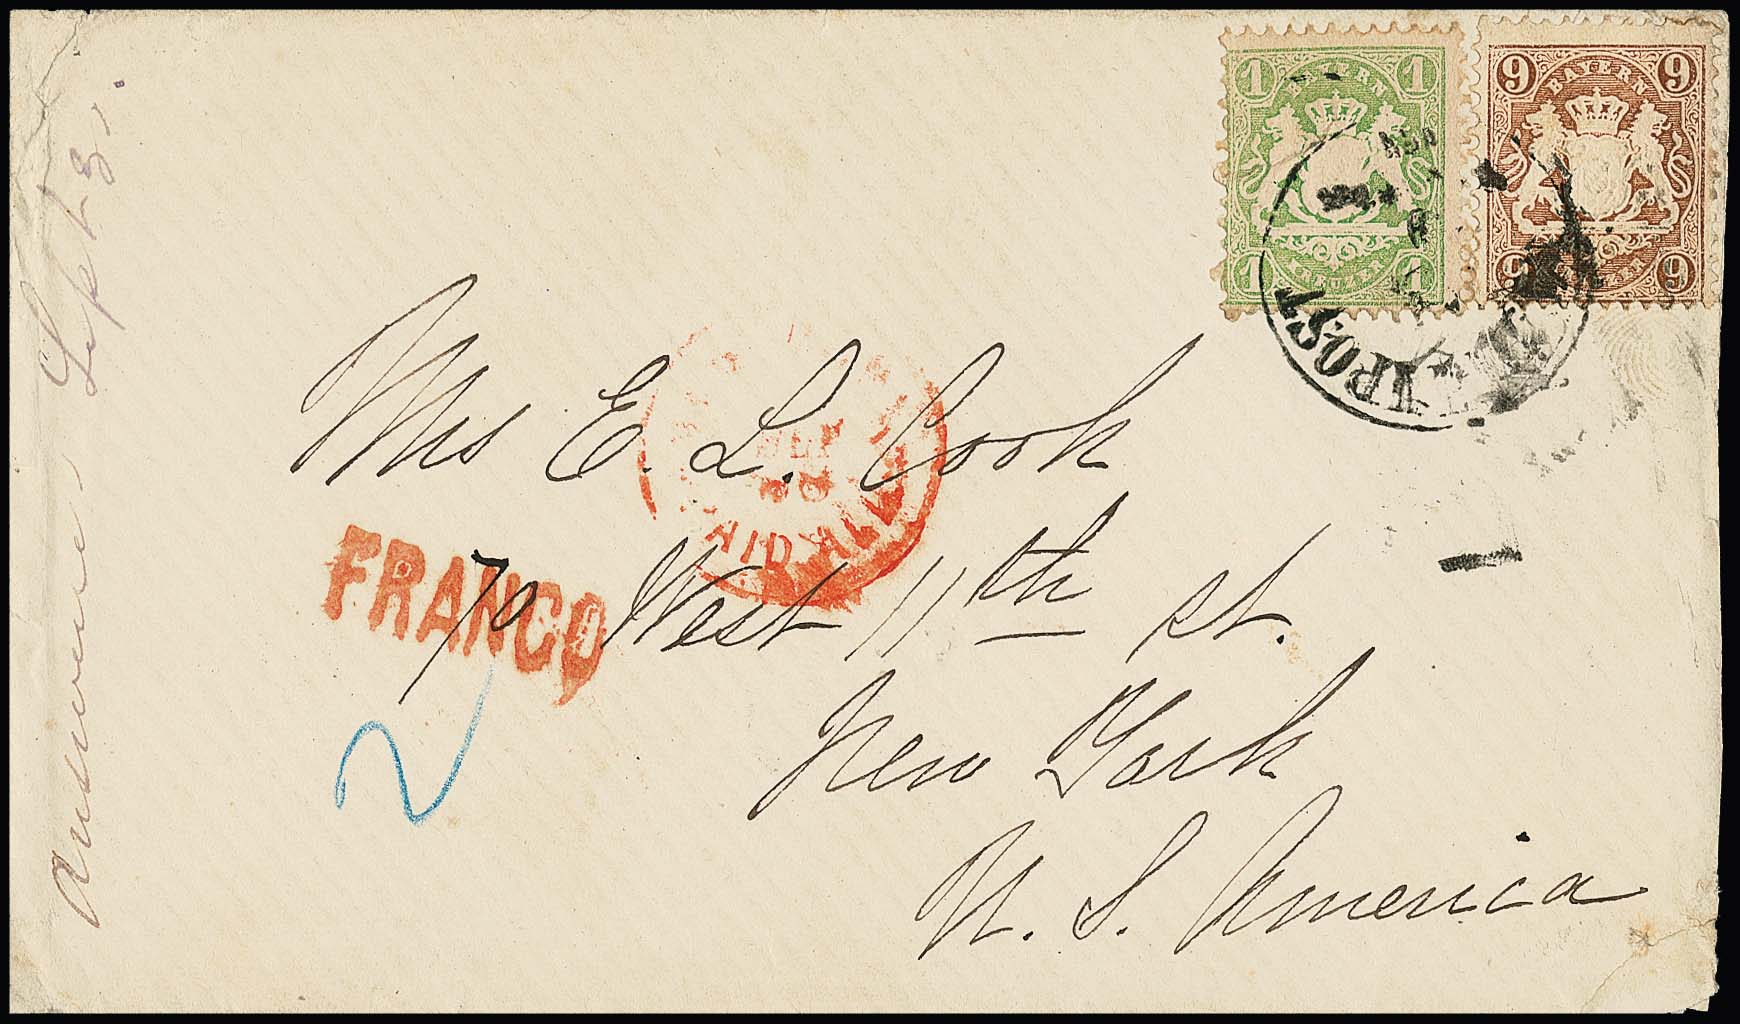 1 1
BAYERN
1 1
KREUZER
9 9
BAYERN
9 9
KREUZER
POST
Mrs E. L. Cook
70 West 11th st.
New York
U. S. America
FRANCO
PAID ALL
2
Answered Sept 8